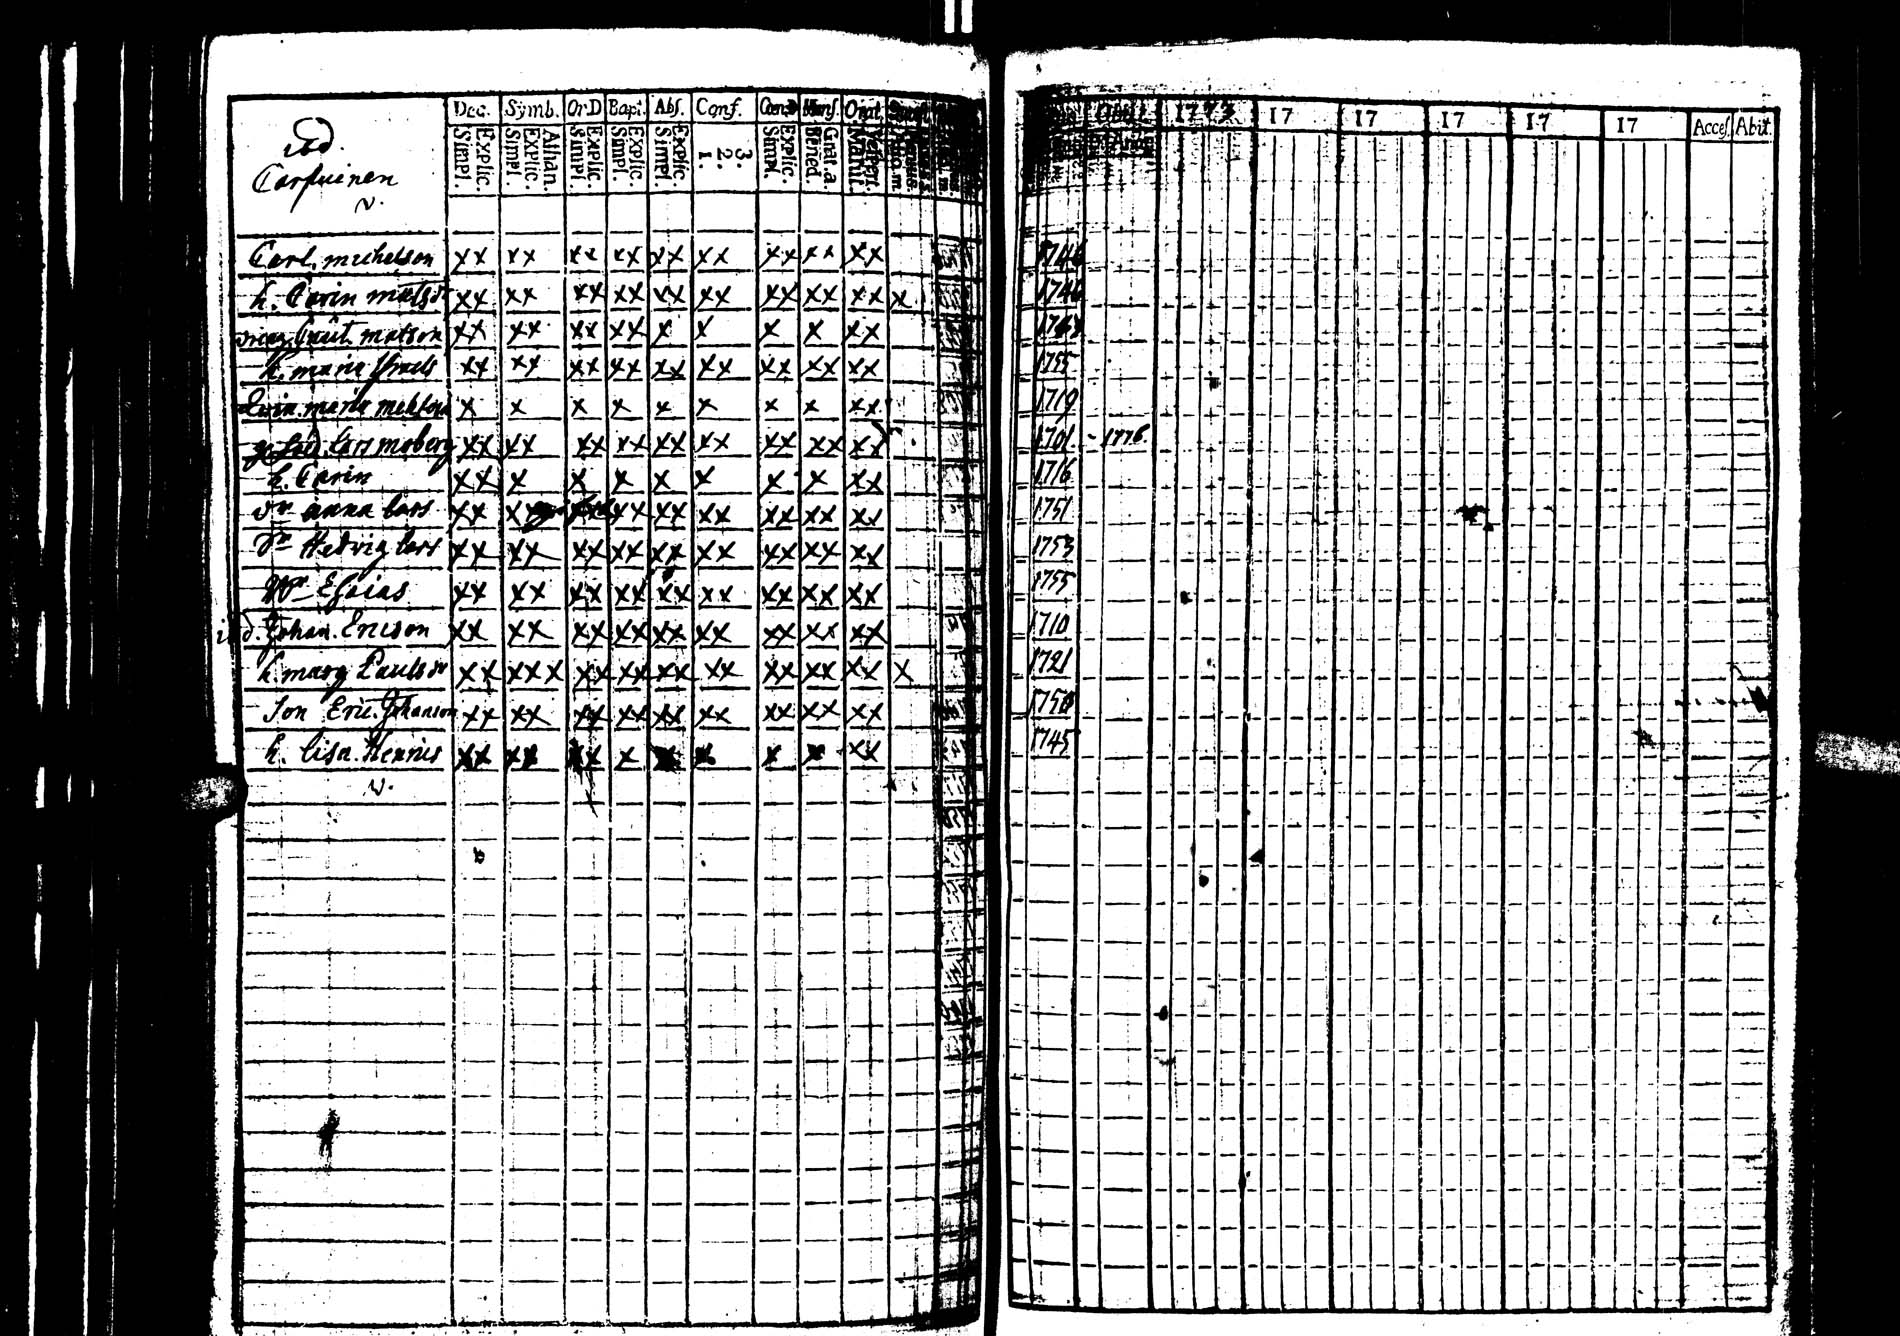 ibd.
Carfuinen
v.
Dec. Symb. Or D Bapt. Abs. Conf. Orat.
Explic. Simpl. Athan. Explic. Simpl. Explic. Simpl. Explic. Simpl. Explic. Simpl. 3. 2. 1. Explic. Simpl. Gnat. a. Bened. Vespert. Matut.
1773 17 17 17 17 17 Acces. Abit.
Carl. michelson xx xx xx xx xx xx xx xx xx 1744
h. Carin matsdr xx xx xx xx xx xx xx xx xx x 1746
matson xx xx xx xx x x x x xx
h. maria xx xx xx xx xx xx xx xx xx 1755
maria x x x x x x x x xx 1719
Lars moberg xx xx xx xx xx xx xx xx xx 1701 - 1776
h. Carin xx x x x x x x x xx 1716
dr anna Lars xx xx xx xx xx xx xx xx 1751
dr Hedvig Lars xx xx xx xx xx xx xx xx xx 1753
Esaias xx xx xx xx xx xx xx xx xx 1755
ibd. Johan. Ericson xx xx xx xx xx xx xx xx xx 1710
h. marg Paulsdr xx xxx xx xx xx xx xx xx xx x 1721
Son Eric. Johanson xx xx xx xx xx xx xx xx xx 1750
h. Lisa. Henrics xx xx xx x x x x x xx 1745
v.